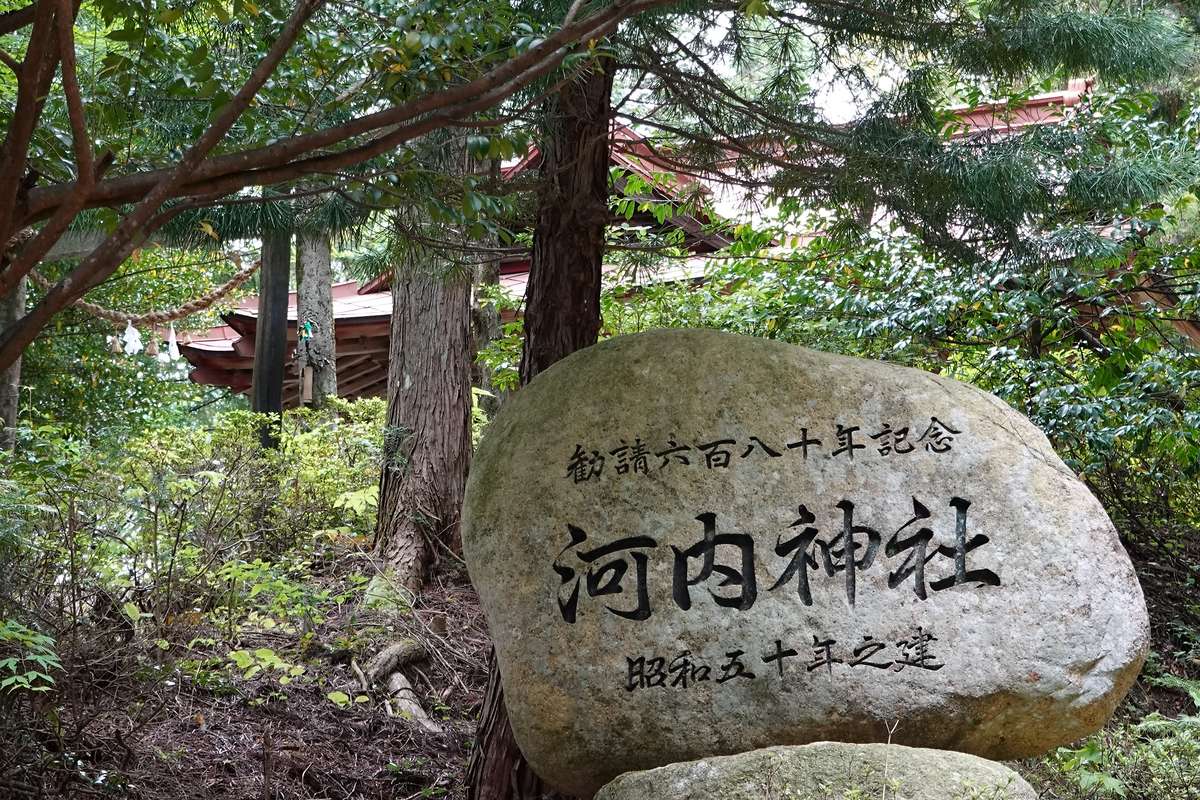 勧請六百八十年記念
河内神社
昭和五十年之建